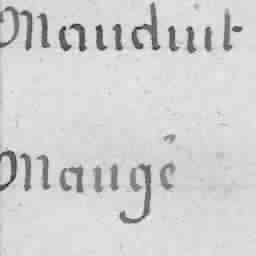 Mauduit
Maugé